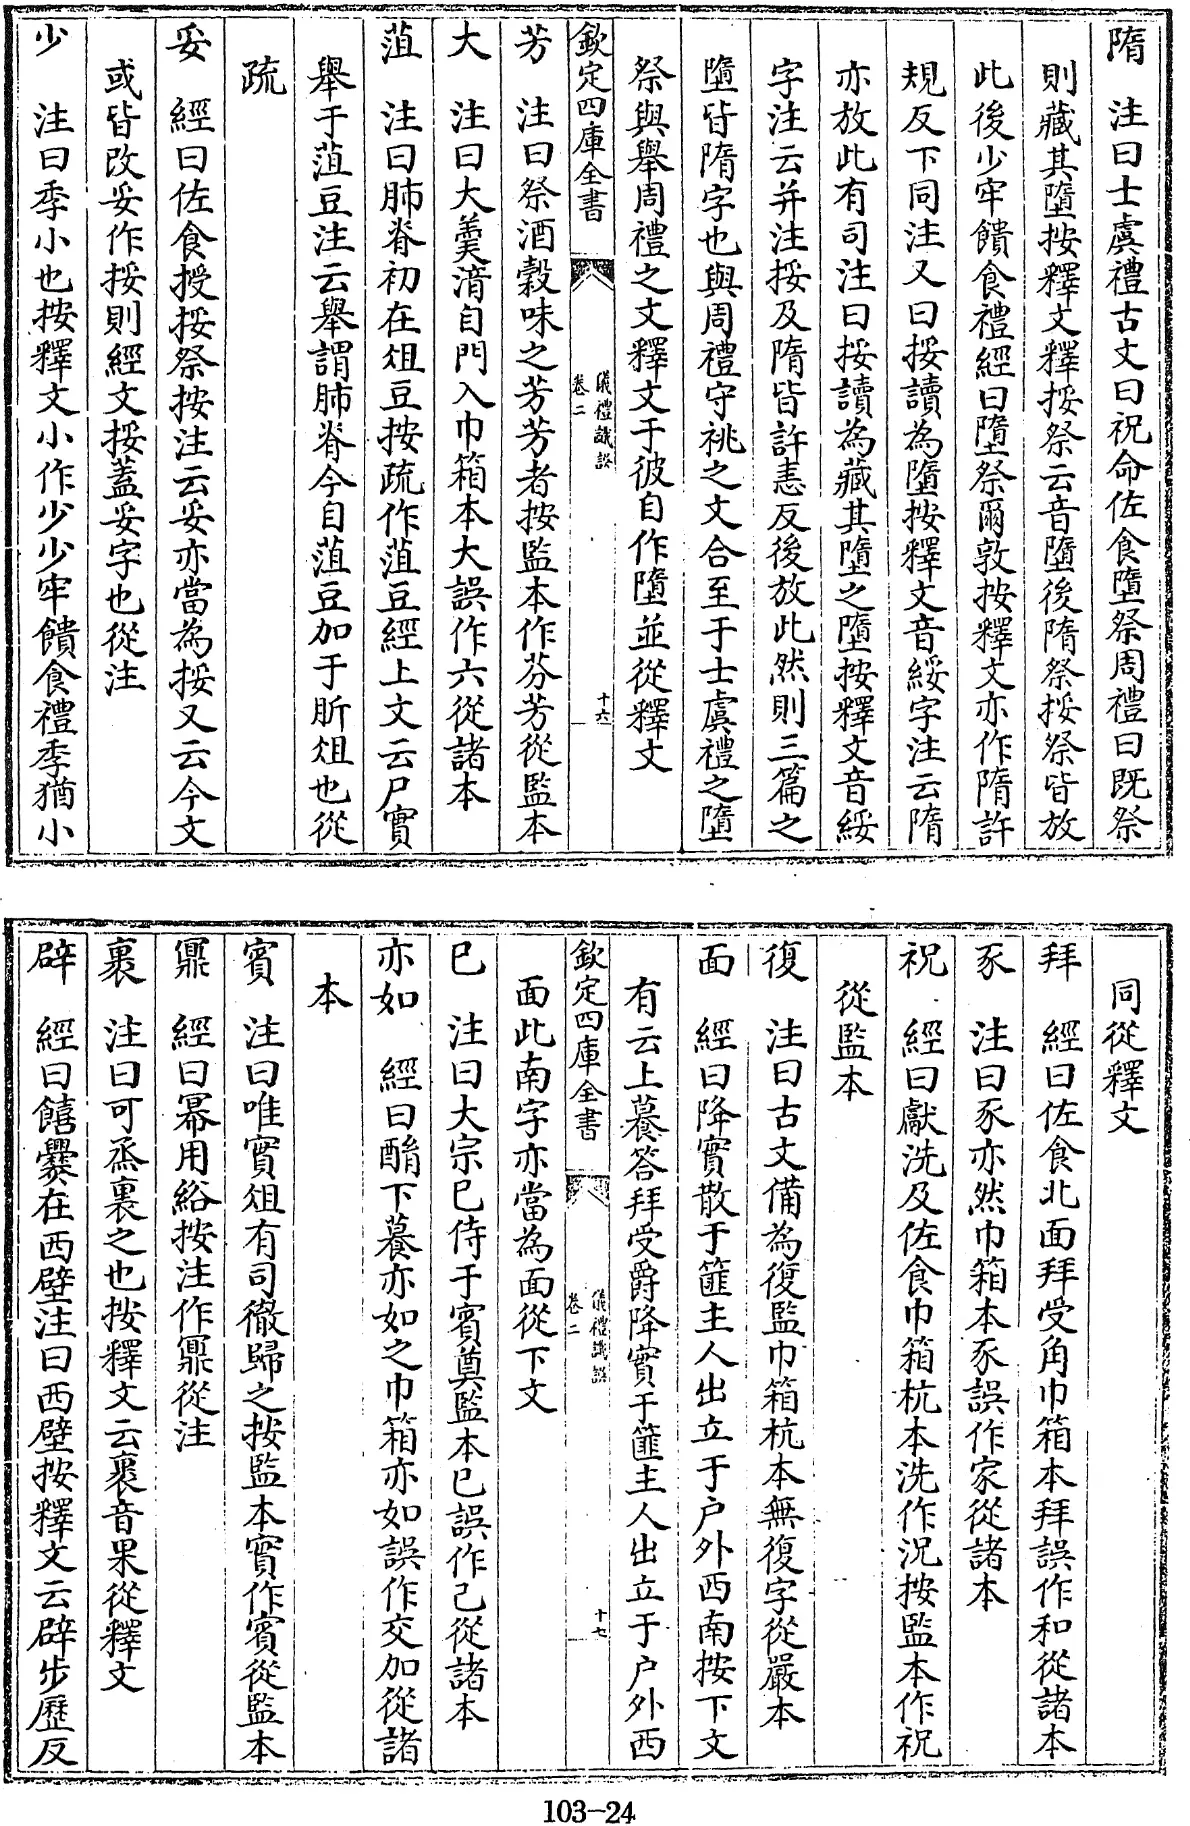 隋　注曰士虞禮古文曰祝命佐食墮祭周禮曰既祭
則藏其墮按釋文釋挼祭云音墮後隋祭挼祭皆放
此後少牢饋食禮經曰墮祭爾敦按釋文亦作隋許
規反下同注又曰挼讀為墮按釋文音綏字注云隋
亦放此有司注曰挼讀為藏其墮之墮按釋文音綏
字注云并注挼及隋皆許恚反後放此然則三篇之
墮皆隋字也與周禮守祧之文合至于士虞禮之墮
祭與舉周禮之文釋文于彼自作墮並從釋文
欽定四庫全書
儀禮識誤
卷二
十六
芳　注曰祭酒穀味之芳芳者按監本作芬芳從監本
大　注曰大羹湆自門入巾箱本大誤作六從諸本
菹　注曰肺脊初在俎豆按疏作菹豆經上文云尸實
舉于菹豆注云舉謂肺脊今自菹豆加于肵俎也從
疏
妥　經曰佐食授挼祭按注云妥亦當為挼又云今文
或皆改妥作挼則經文挼蓋妥字也從注
少　注曰季小也按釋文小作少少牢饋食禮季猶小
同從釋文
拜　經曰佐食北面拜受角巾箱本拜誤作和從諸本
豕　注曰豕亦然巾箱本豕誤作家從諸本
祝　經曰獻洗及佐食巾箱杭本洗作況按監本作祝
從監本
復　注曰古文備為復監巾箱杭本無復字從嚴本
面　經曰降實散于篚主人出立于户外西南按下文
有云上養答拜受爵降實于篚主人出立于户外西
欽定四庫全書
儀禮識誤
卷二
十七
面此南字亦當為面從下文
已　注曰大宗已侍于賓奠監本已誤作己從諸本
亦如　經曰酳下養亦如之巾箱亦如誤作交加從諸
本
賓　注曰唯賓俎有司徹歸之按監本實作賓從監本
鼏　經曰冪用綌按注作鼏從注
裹　注曰可烝裹之也按釋文云裹音果從釋文
辟　經曰饎爨在西壁注曰西壁按釋文云辟步歷反
103-24